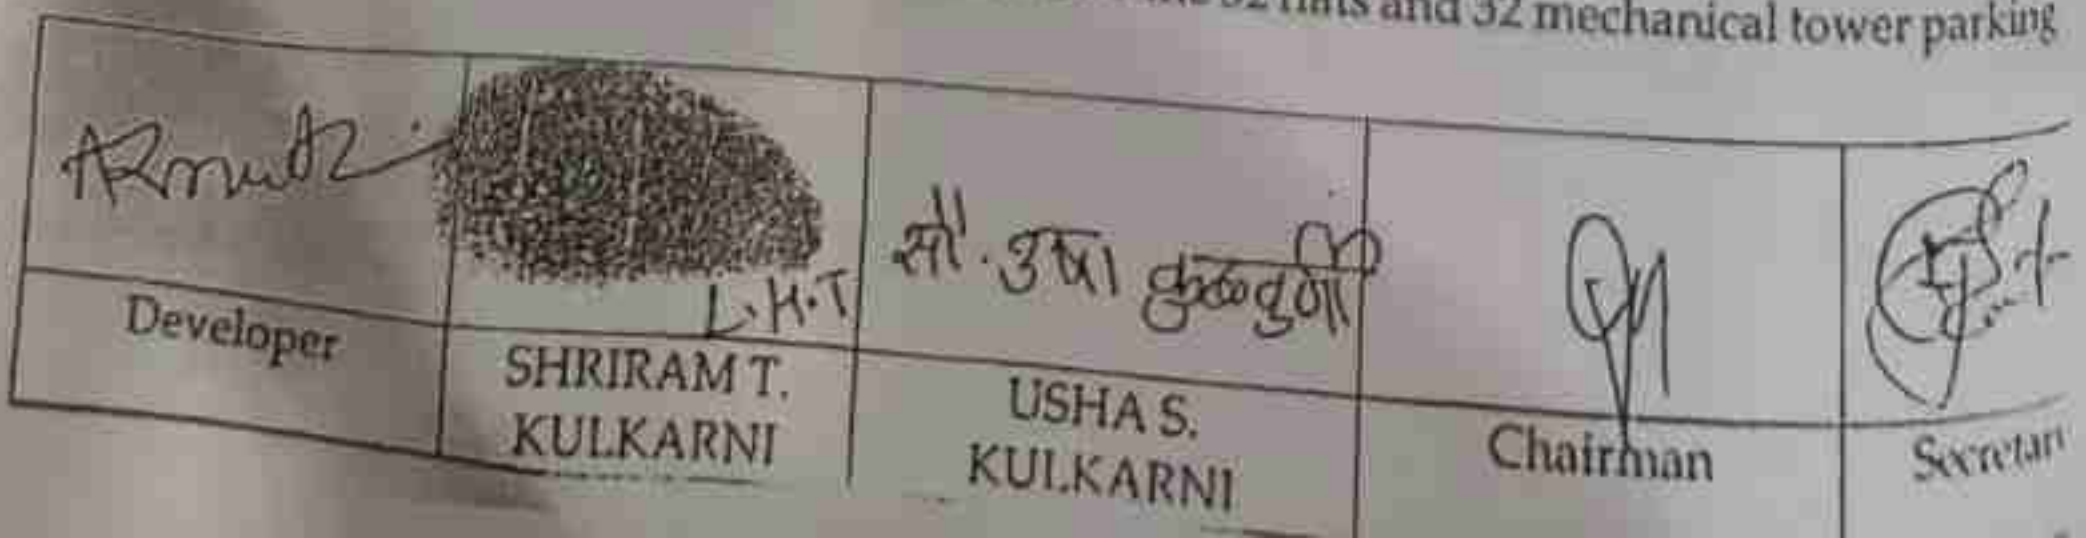 32 flats and 32 mechanical tower parking
L.H.T
सौ. उषा कुळकर्णी
Developer
SHRIRAM T.
KULKARNI
USHA S.
KULKARNI
Chairman
Secretar